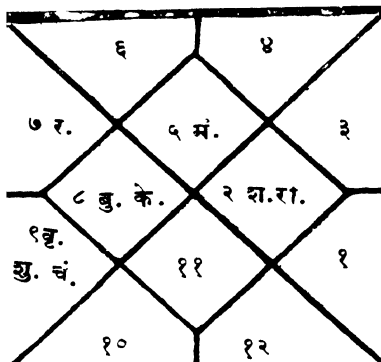 ६ ४
७ र. ५ मं. ३
८ बु. के. २ श.रा.
९वृ.
शु. चं. ११ १
१० १२